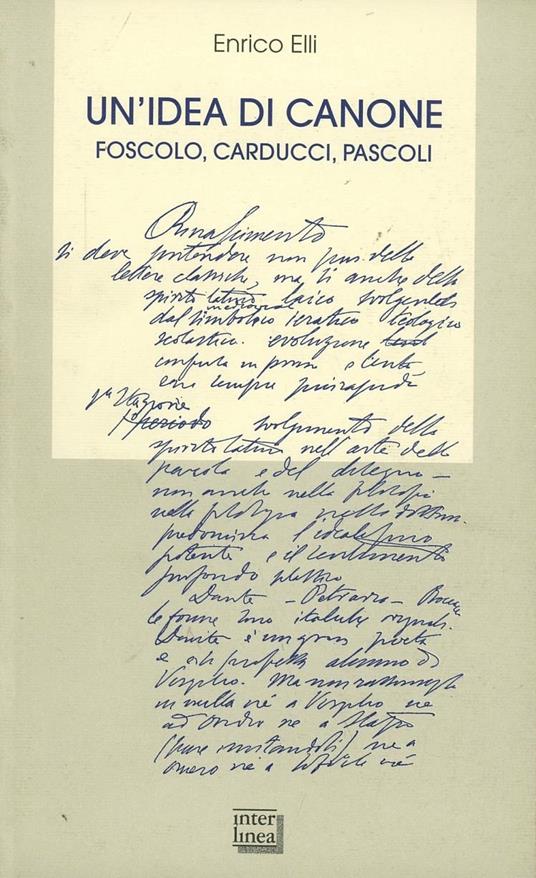 Enrico Elli
UN'IDEA DI CANONE
FOSCOLO, CARDUCCI, PASCOLI
Rinascimento
si deve intendere non pur delle
lettere classiche, ma sì anche dello
spirito latino laico svolgentesi
medioevale
dal simbolico ieratico teologico
scolastico. evoluzione
compiuta in prima e lenta
con sempre più
1ª stagione
periodo svolgimento dello
spirito latino nell'arte della
parola e del disegno –
non anche nella filosofia
nella
predomina l'idealismo
potente e il sentimento
profondo
Dante – Petrarca –
le forme sono italiche
Dante è un gran poeta
e si professa alunno di
Virgilio. Ma non rassomiglia
in nulla né a Virgilio né
ad Ovidio né a Stazio
(pure imitandoli) né a
Omero né a
inter
linea